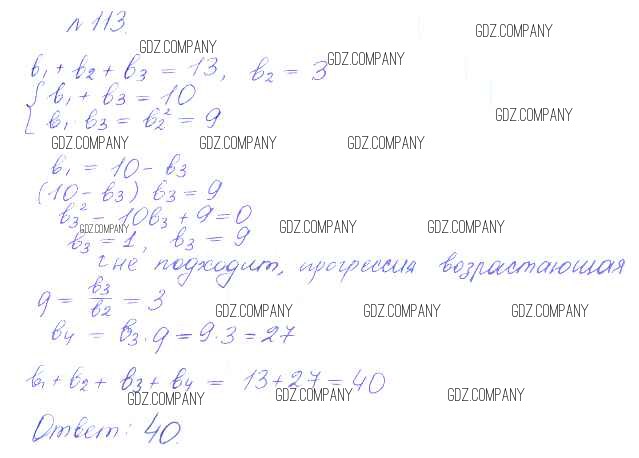 N 113.
GDZ.COMPANY GDZ.COMPANY
b₁ + b₂ + b₃ = 13, b₂ = 3 GDZ.COMPANY
b₁ + b₃ = 10
b₁ · b₃ = b₂² = 9 GDZ.COMPANY
GDZ.COMPANY GDZ.COMPANY GDZ.COMPANY
b₁ = 10 - b₃
(10 - b₃) b₃ = 9
b₃² - 10b₃ + 9 = 0
GDZ.COMPANY GDZ.COMPANY GDZ.COMPANY
b₃ = 1, b₃ = 9
не подходит, прогрессия возрастающая
q = b₃/b₂ = 3
GDZ.COMPANY GDZ.COMPANY GDZ.COMPANY
b₄ = b₃ · q = 9 · 3 = 27
b₁ + b₂ + b₃ + b₄ = 13 + 27 = 40
GDZ.COMPANY GDZ.COMPANY GDZ.COMPANY
Ответ: 40.